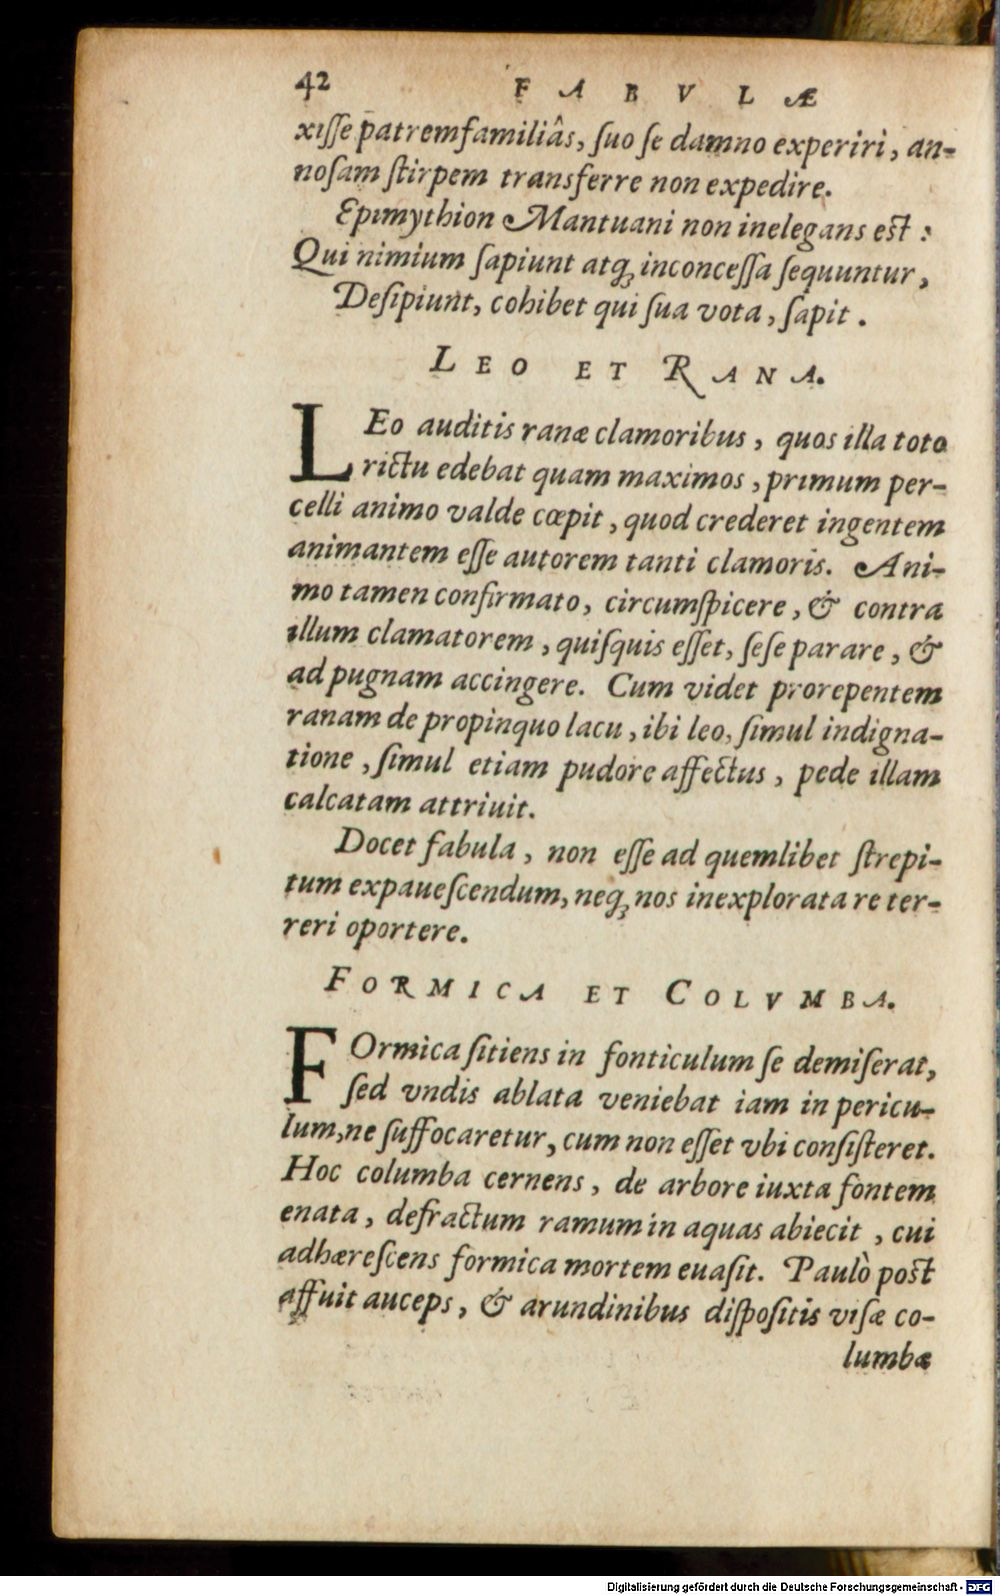 42 FABVLÆ
xiſſe patremfamiliâs, ſuo ſe damno experiri, an-
noſam ſtirpem transferre non expedire.
Epimythion Mantuani non inelegans eſt :
Qui nimium ſapiunt atqꝫ inconceſſa ſequuntur,
Deſipiunt, cohibet qui ſua vota, ſapit.
LEO ET RANA.
LEo auditis ranæ clamoribus, quos illa toto
rictu edebat quam maximos, primum per-
celli animo valde cœpit, quod crederet ingentem
animantem eſſe autorem tanti clamoris. Ani-
mo tamen confirmato, circumſpicere, & contra
illum clamatorem, quiſquis eſſet, ſeſe parare, &
ad pugnam accingere. Cum videt prorepentem
ranam de propinquo lacu, ibi leo, ſimul indigna-
tione, ſimul etiam pudore affectus, pede illam
calcatam attriuit.
Docet fabula, non eſſe ad quemlibet ſtrepi-
tum expaueſcendum, neqꝫ nos inexplorata re ter-
reri oportere.
FORMICA ET COLVMBA.
FOrmica ſitiens in fonticulum ſe demiſerat,
ſed vndis ablata veniebat iam in pericu-
lum, ne ſuffocaretur, cum non eſſet vbi conſiſteret.
Hoc columba cernens, de arbore iuxta fontem
enata, defractum ramum in aquas abiecit, cui
adhæreſcens formica mortem euaſit. Paulò poſt
affuit auceps, & arundinibus diſpoſitis viſæ co-
lumbæ
Digitalisierung gefördert durch die Deutsche Forschungsgemeinschaft - DFG